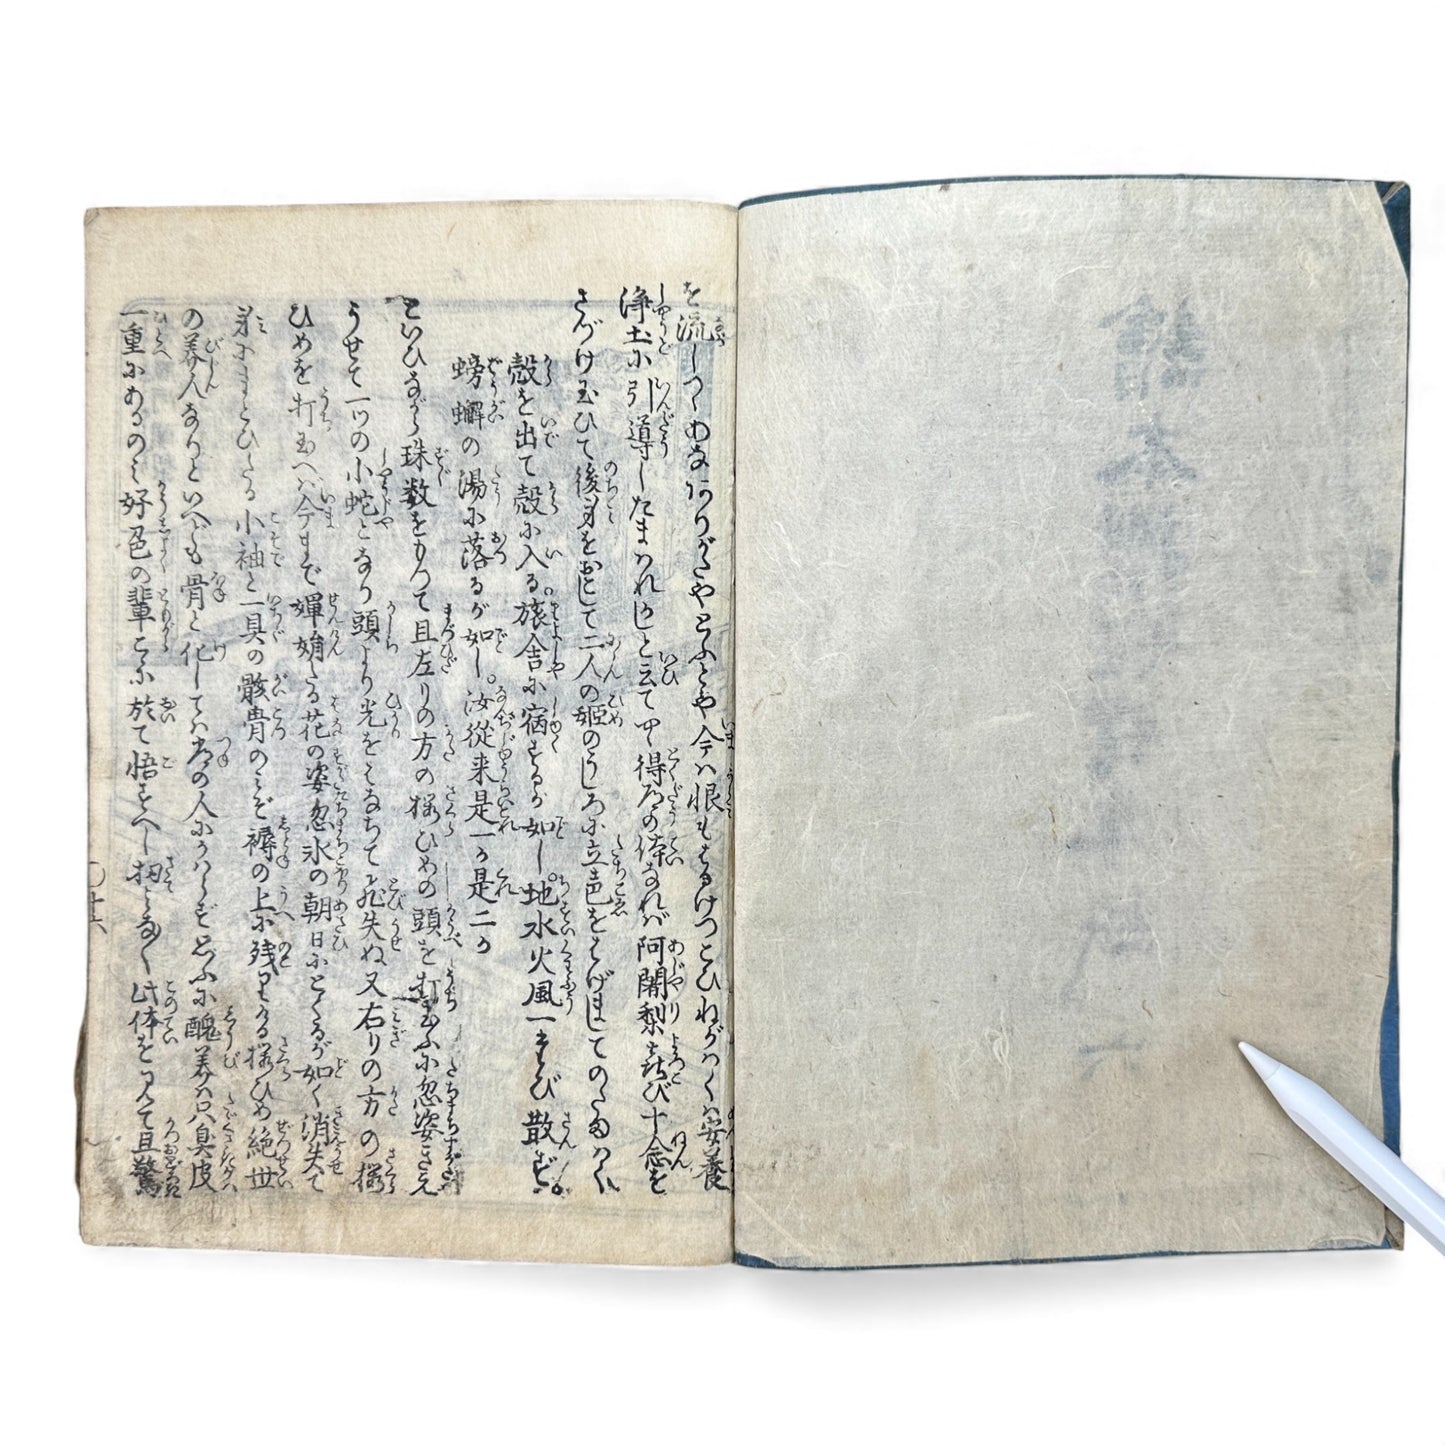 を流しつゝあなありがたやたふとや今ハ恨もはるけつこひねがハくハ安養
浄土に引導したまハれかしと云て得道の体なれバ阿闍梨喜び十念を
さづけ玉ひて後身をおこして二人の姫のうしろに立声をはげましてのたまハく
殻を出て殻に入る旅舎に宿するが如し地水火風一たび散ず。
螃蠏の湯に落るが如し。汝従来是一か是二か
といひながら珠数をもつて且左りの方の桜ひめの頭を打玉ふに忽姿きえ
うせて一ツの小蛇となり頭より光をはなちて飛失ぬ又右りの方の桜
ひめを打玉へバ今まで嬋娟たる花の姿忽氷の朝日にとくるが如く消失て
身にまとひたる小袖と一具の骸骨のミぞ褥の上に残りける桜ひめ絶世
の美人なりといへども骨と化してハ常の人にかハらず思ふに醜美ハ只臭皮
一重にあるのミ好色の輩こゝに於て悟すべし扨となく此体を見て且驚